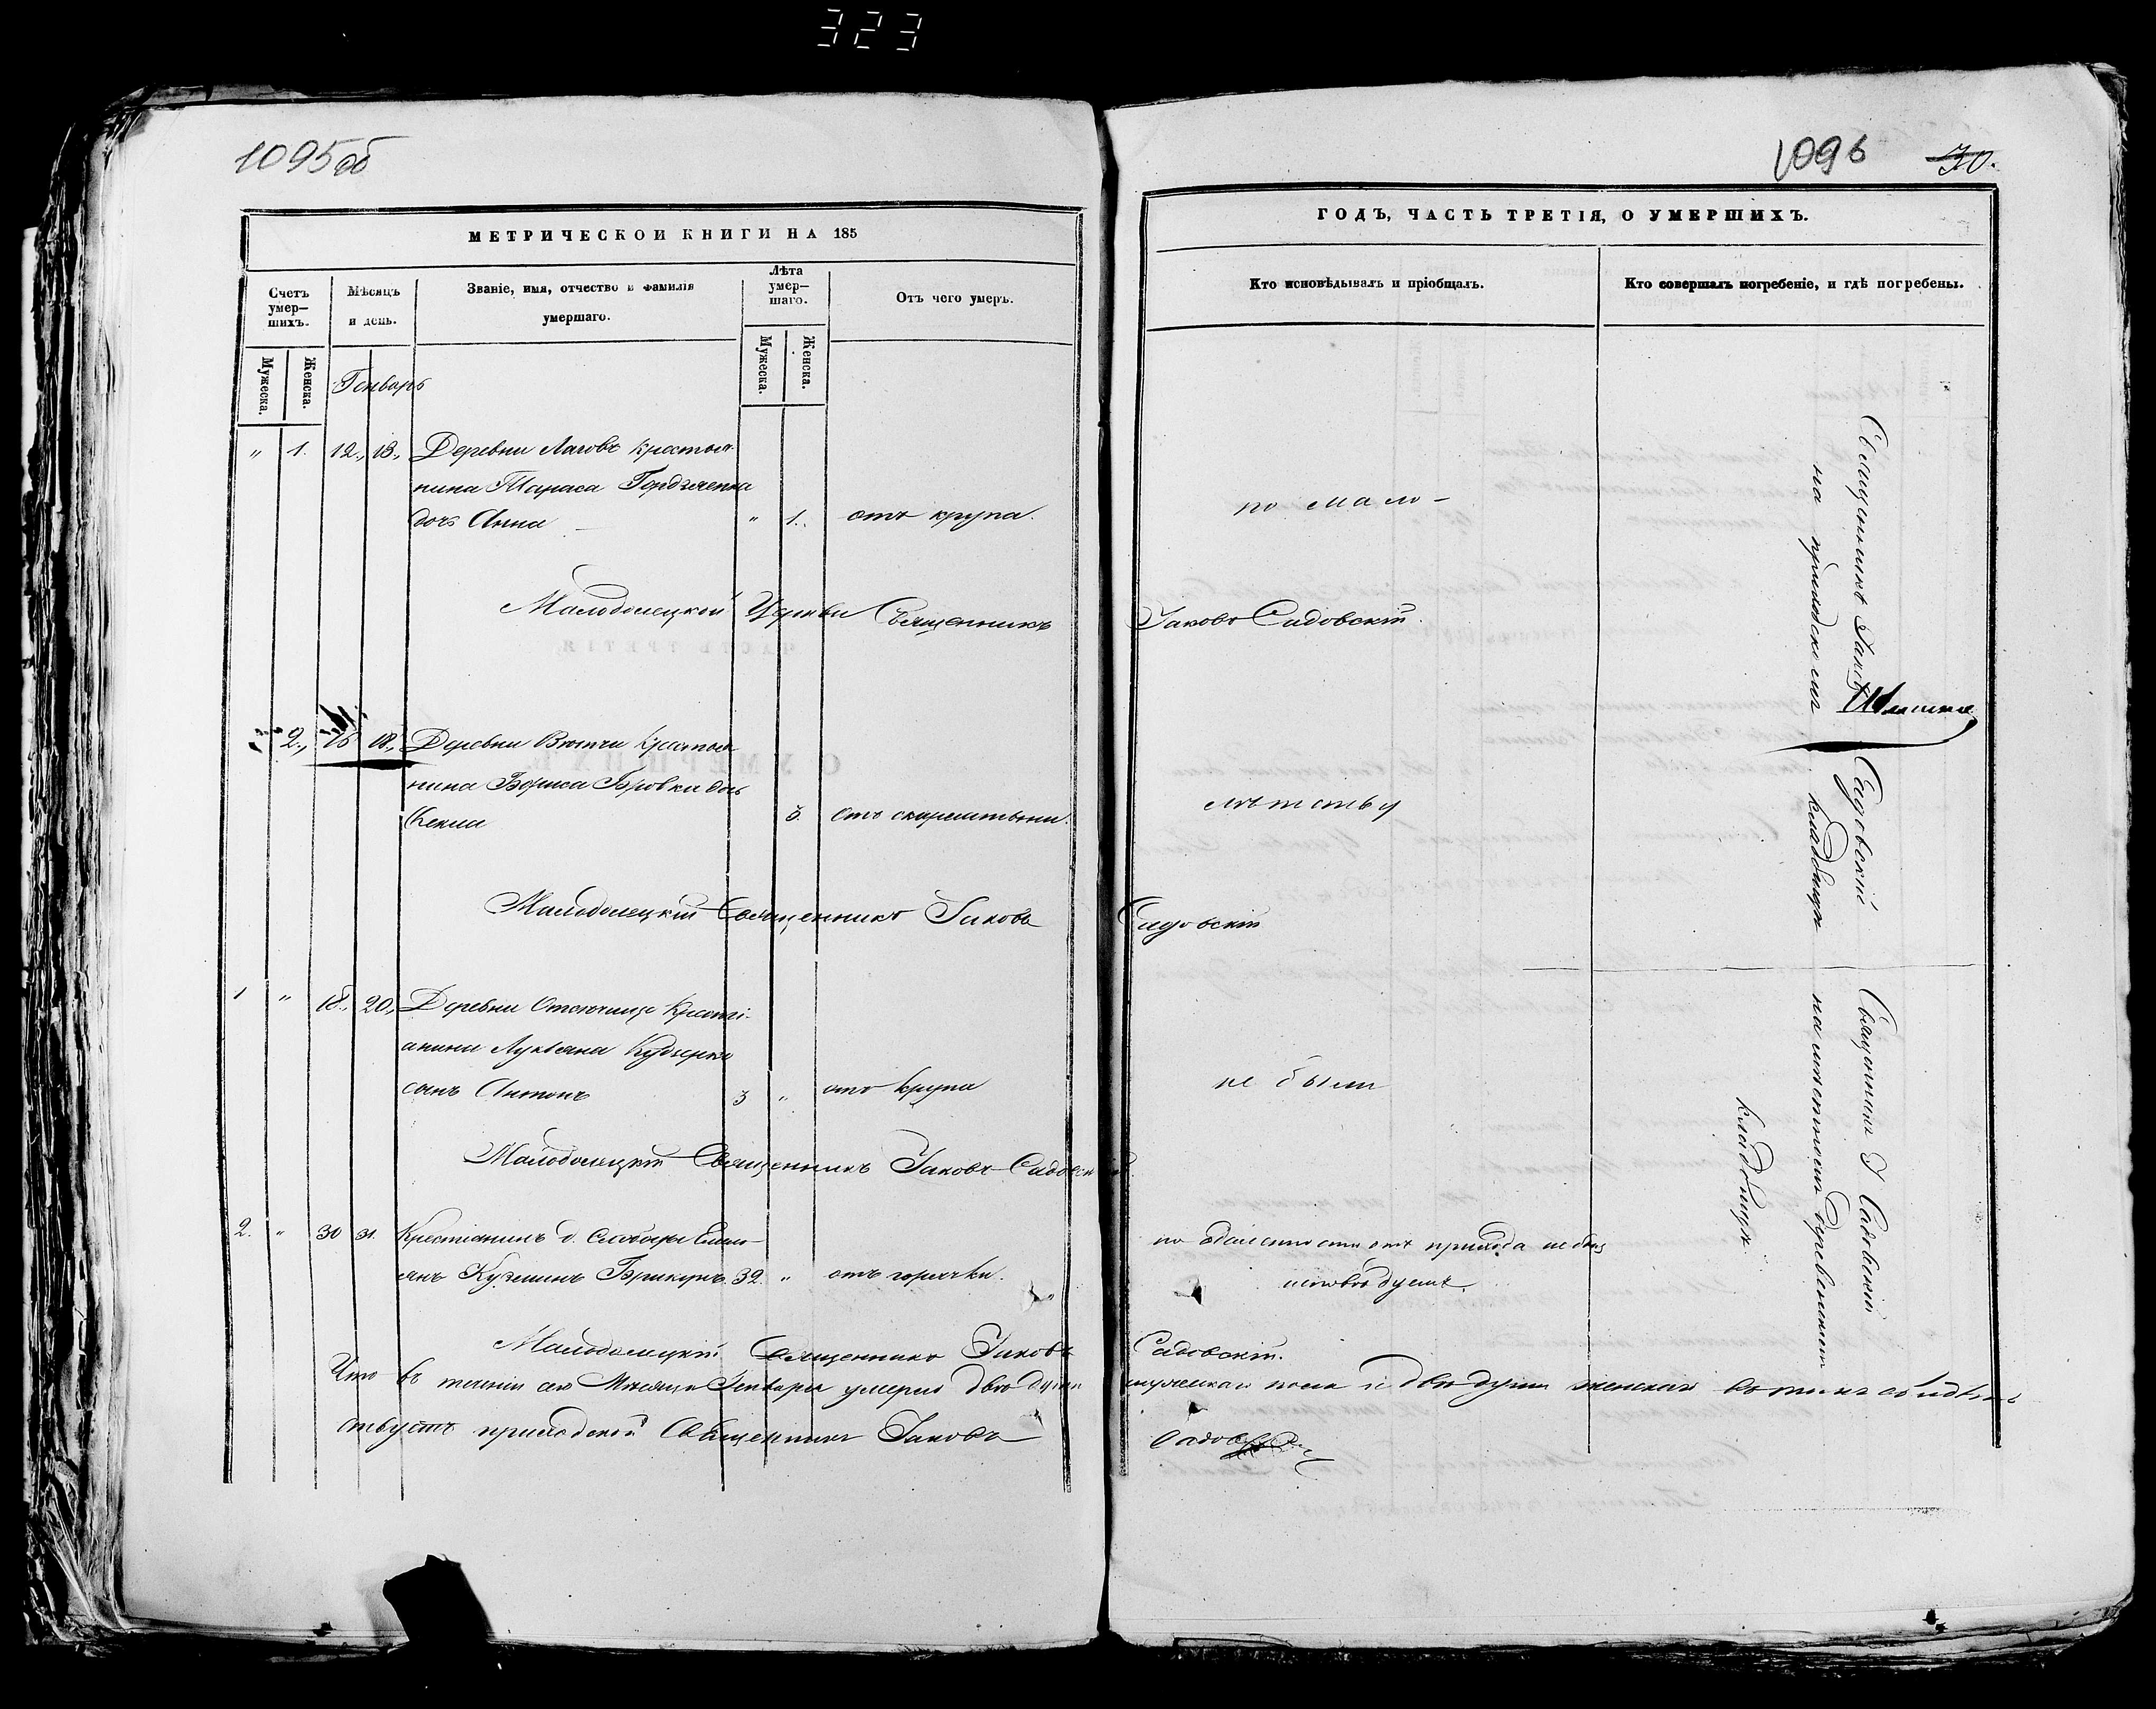 323
1095об
1096 30.
МЕТРИЧЕСКОЙ КНИГИ НА 185
ГОДЪ, ЧАСТЬ ТРЕТІЯ, О УМЕРШИХЪ.
Счетъ умер–шихъ.
Мѣсяцъ и день.
Званіе, имя, отчество и фамилія умершаго.
Лѣта умер–шаго.
Отъ чего умеръ.
Кто исповѣдывалъ и пріобщалъ.
Кто совершалъ погребеніе, и гдѣ погребены.
Мужеска.
Женска.
Мужеска.
Женска.
Генварь
" 1. 12., 13., Деревни Лаговъ крестья-
нина Тараса
дочь Анна " 1. отъ крупа.
по мало-
Малодолецкой Церкви Священникъ Іаковъ Садовскій.
2., 16 18., Деревни крестья
нина Бориса Бровки дочь
3. отъ скарлатыны.
лѣтству
Малодолецкій Священникъ Іаковъ Садовскій
1 " 18., 20., Деревни крестьі-
анина Лукьяна
сынъ Антонъ 3 " отъ крупа
не были
Малодолецкій Священникъ Іаковъ Садовскій
2. " 30 31. Крестіанинъ д. Слободы Емель-
янъ Кузминъ 32. " отъ горячки.
по отдаленности отъ прихода не былъ
исповѣдуемъ.
Малодолецкій Священникъ Іаковъ Садовскій.
Что въ теченіи сего Мѣсяца Генваря умерло двѣ души мужескаго пола и двѣ души женскаго въ томъ свидѣтель
ствуетъ приходской Священникъ Іаковъ Садовскій
Священникъ Іаковъ Садовскій
на приходскомъ кладбищѣ
Священникъ І Садовскій
на деревенскомъ
кладбищѣ